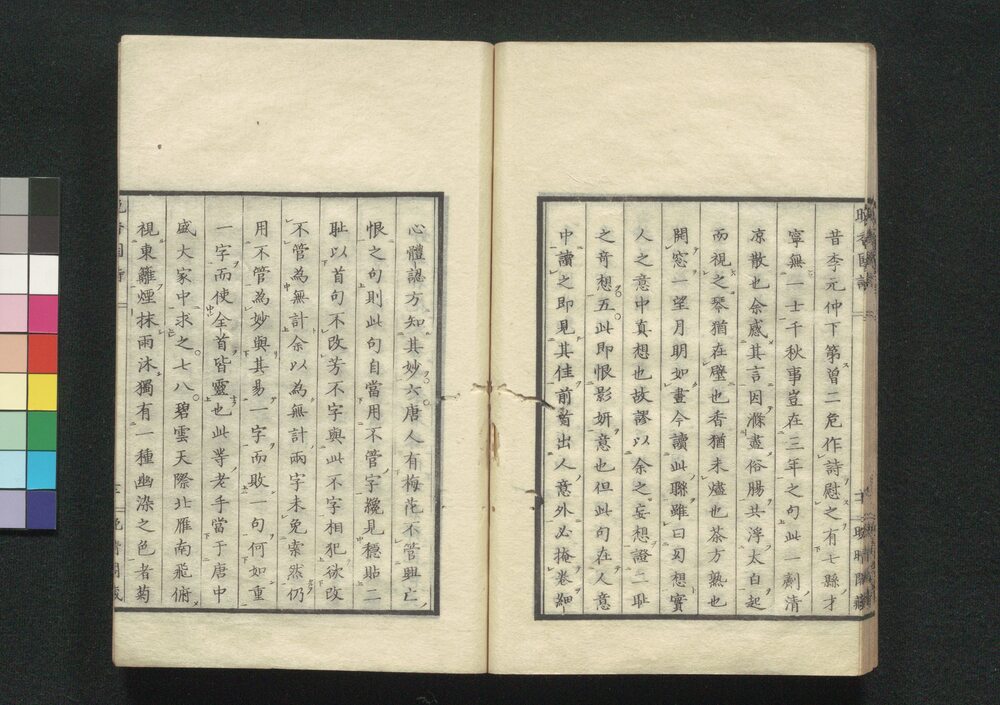 昔李元仲下第曾二危作詩慰之有七縣才
寧無一士千秋事豈在三年之句此一劑清
凉散也余感其言因滌盡俗腸共浮太白起
而視之琴猶在壁也香猶未燼也茶方熟也
開窓一望月明如晝今讀此聯雖曰幻想實
人之意中真想也故謬以余之妄想證二耻
之奇想五此即恨影妍意也但此句在人意
中讀之即見其佳前首出人意外必掩卷細
心體認方知其妙六唐人有梅花不管興亡
恨之句則此句自當用不管字纔見穩貼二
耻以首句不改芳不字與此不字相犯欲改
不管為無計余以為無計兩字未免索然仍
用不管為妙與其易一字而敗一句何如重
一字而使全首皆靈也此等老手當于唐中
盛大家中求之七八碧雲天際北雁南飛俯
視東籬煙抹雨沐獨有一種幽染之色者菊